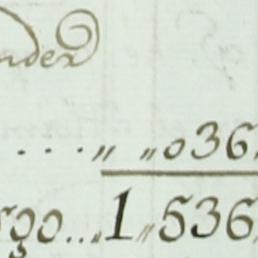 nder
....,, ,,036,
rgo...1,,536,